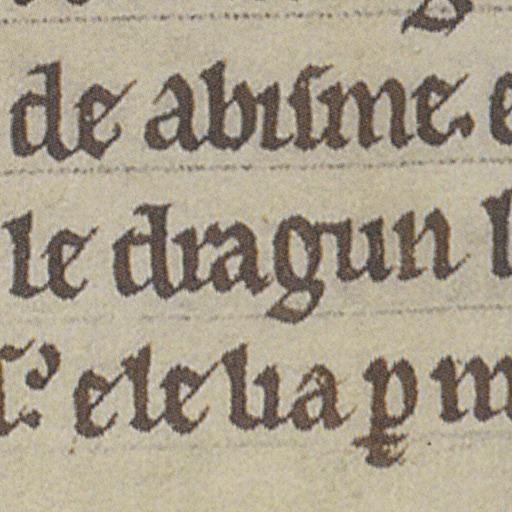 de abisme. e
le dragun l
e le lia p m